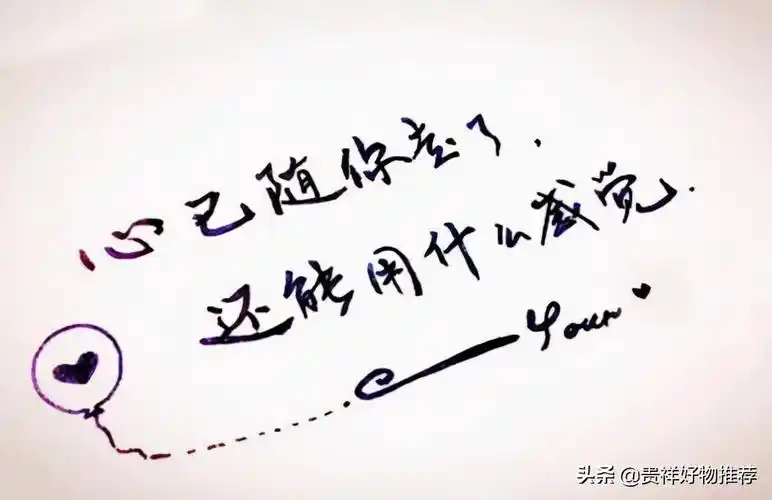 心已随你去了.
还能用什么感觉.
Your
头条 @贵祥好物推荐